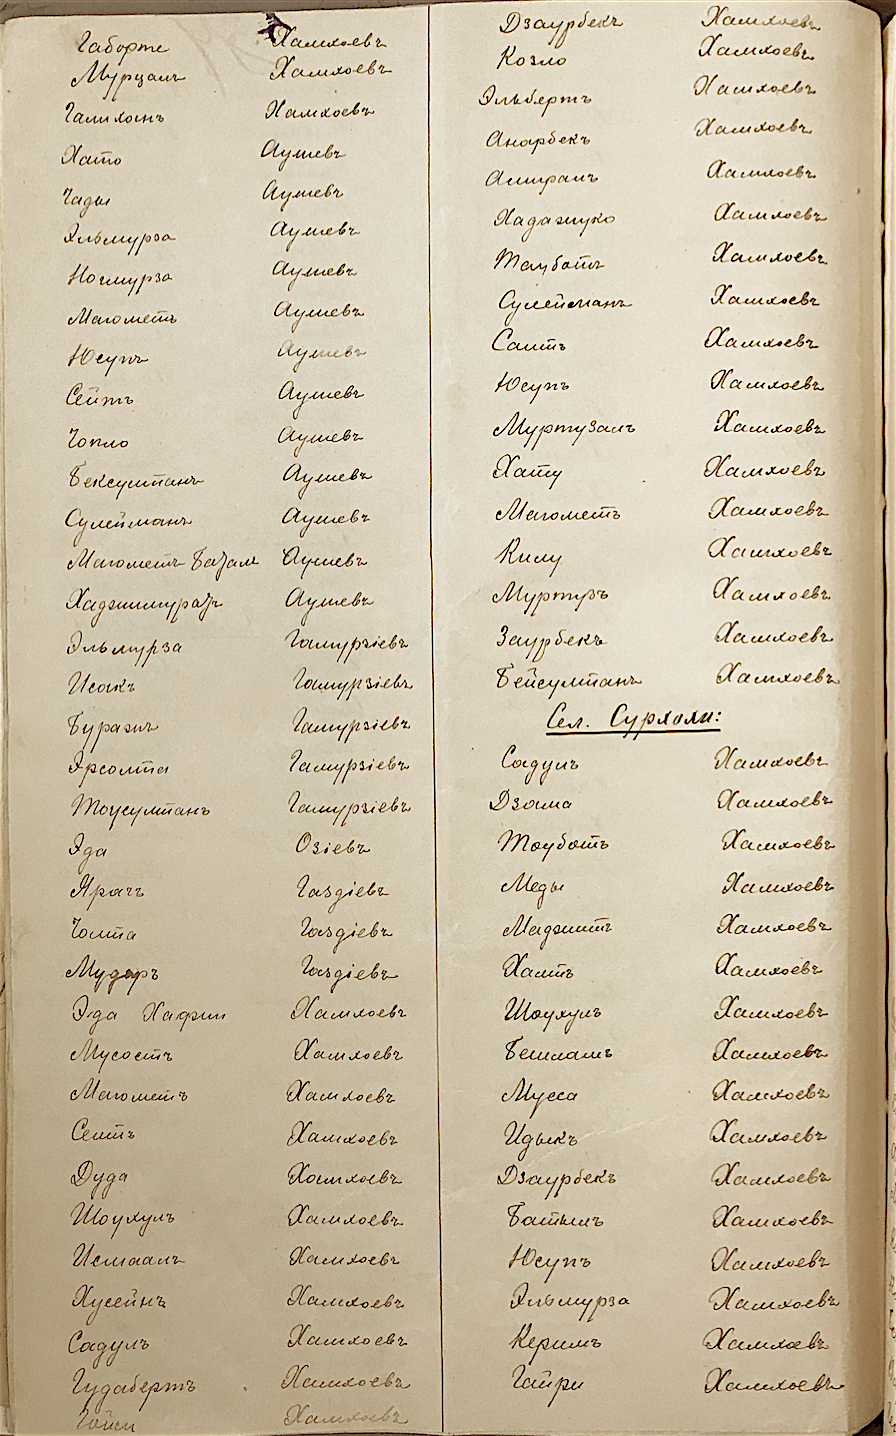 Габерте Хамхоевъ
Мурцалъ Хамхоевъ
Галихонъ Хамхоевъ
Хато Аушевъ
Чады Аушевъ
Эльмурза Аушевъ
Ногмурза Аушевъ
Магометъ Аушевъ
Юсупъ Аушевъ
Сейтъ Аушевъ
Чопло Аушевъ
Бексултанъ Аушевъ
Сулейманъ Аушевъ
Магометъ Аушевъ
Хаджимуратъ Аушевъ
Эльмурза Гамурзіевъ
Исакъ Гамурзіевъ
Буразъ Гамурзіевъ
Эрсолта Гамурзіевъ
Тоусултанъ Гамурзіевъ
Эда Озіевъ
Ярачъ Газдіевъ
Чолта Газдіевъ
Мударъ Газдіевъ
Эда Хафизи Хамхоевъ
Мусостъ Хамхоевъ
Магометъ Хамхоевъ
Сеитъ Хамхоевъ
Дуда Хамхоевъ
Шоухулъ Хамхоевъ
Исмаалъ Хамхоевъ
Хусейнъ Хамхоевъ
Садулъ Хамхоевъ
Гудабертъ Хамхоевъ
Гойси Хамхоевъ
Дзаурбекъ Хамхоевъ
Козло Хамхоевъ
Эльбертъ Хамхоевъ
Анарбекъ Хамхоевъ
Асшралъ Хамхоевъ
Хадажуко Хамхоевъ
Тауботъ Хамхоевъ
Сулейманъ Хамхоевъ
Саитъ Хамхоевъ
Юсупъ Хамхоевъ
Муртузалъ Хамхоевъ
Хату Хамхоевъ
Магометъ Хамхоевъ
Килу Хамхоевъ
Муртузъ Хамхоевъ
Заурбекъ Хамхоевъ
Бейсултанъ Хамхоевъ
Сел. Сурхохи:
Садулъ Хамхоевъ
Дзама Хамхоевъ
Тоуботъ Хамхоевъ
Меды Хамхоевъ
Маджитъ Хамхоевъ
Хамтъ Хамхоевъ
Шоухулъ Хамхоевъ
Бешламъ Хамхоевъ
Мусса Хамхоевъ
Идыкъ Хамхоевъ
Дзаурбекъ Хамхоевъ
Батылъ Хамхоевъ
Юсупъ Хамхоевъ
Эльмурза Хамхоевъ
Керимъ Хамхоевъ
Гайри Хамхоевъ